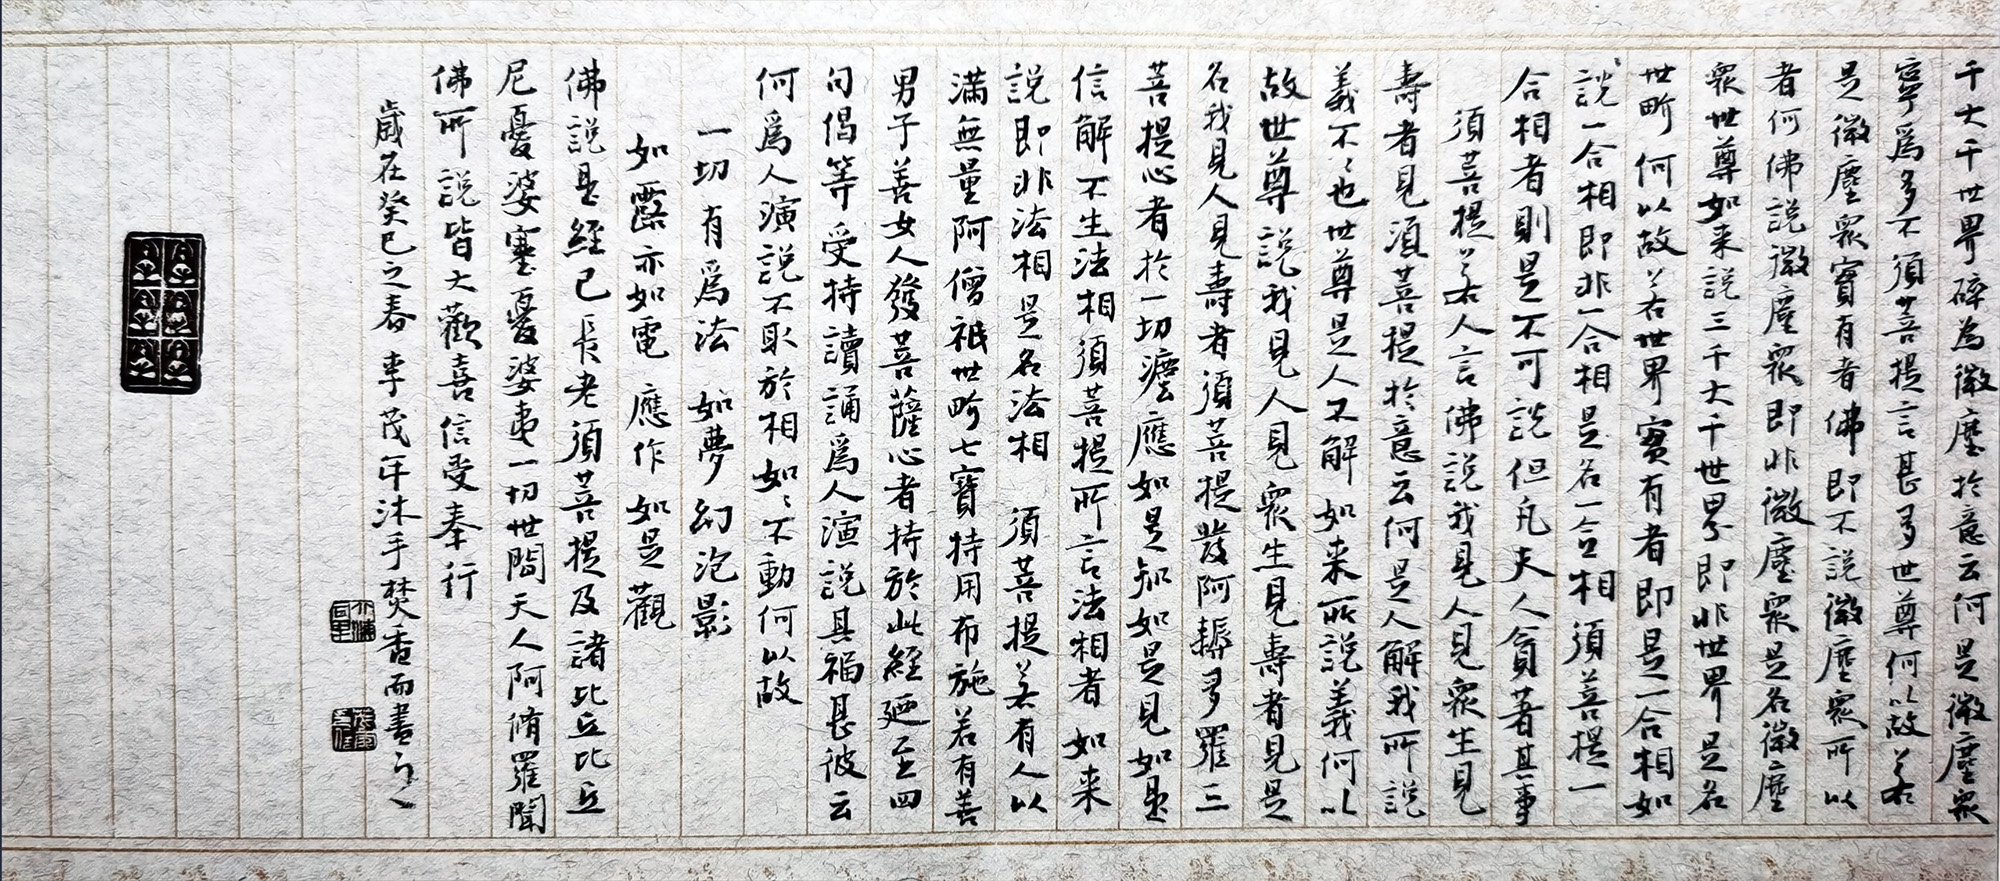 千大千世界碎為微塵於意云何是微塵眾
寧為多不須菩提言甚多世尊何以故若
是微塵眾實有者佛即不說微塵眾所以
者何佛說微塵眾即非微塵眾是名微塵
眾世尊如来說三千大千世界即非世界是名
世界何以故若世界實有者即是一合相如
說一合相即非一合相是名一合相須菩提一
合相者則是不可說但凡夫人貪著其事
須菩提若人言佛說我見人見眾生見
壽者見須菩提於意云何是人解我所說
義不不也世尊是人不解如来所說義何以
故世尊說我見人見眾生見壽者見是
名我見人見壽者須菩提發阿耨多羅三
菩提心者於一切塵應如是知如是見如是
信解不生法相須菩提所言法相者如来
說即非法相是名法相 須菩提若有人以
滿無量阿僧祇世界七寶持用布施若有善
男子善女人發菩薩心者持於此經廼至四
句偈等受持讀誦為人演說其福甚彼云
何為人演說不取於相如如不動何以故
一切有為法 如夢幻泡影
如露亦如電 應作如是觀
佛說是經已長老須菩提及諸比丘比丘
尼憂婆塞憂婆夷一切世間天人阿脩羅聞
佛所說皆大歡喜信受奉行
歲在癸巳之春 李茂年沐手焚香而書之